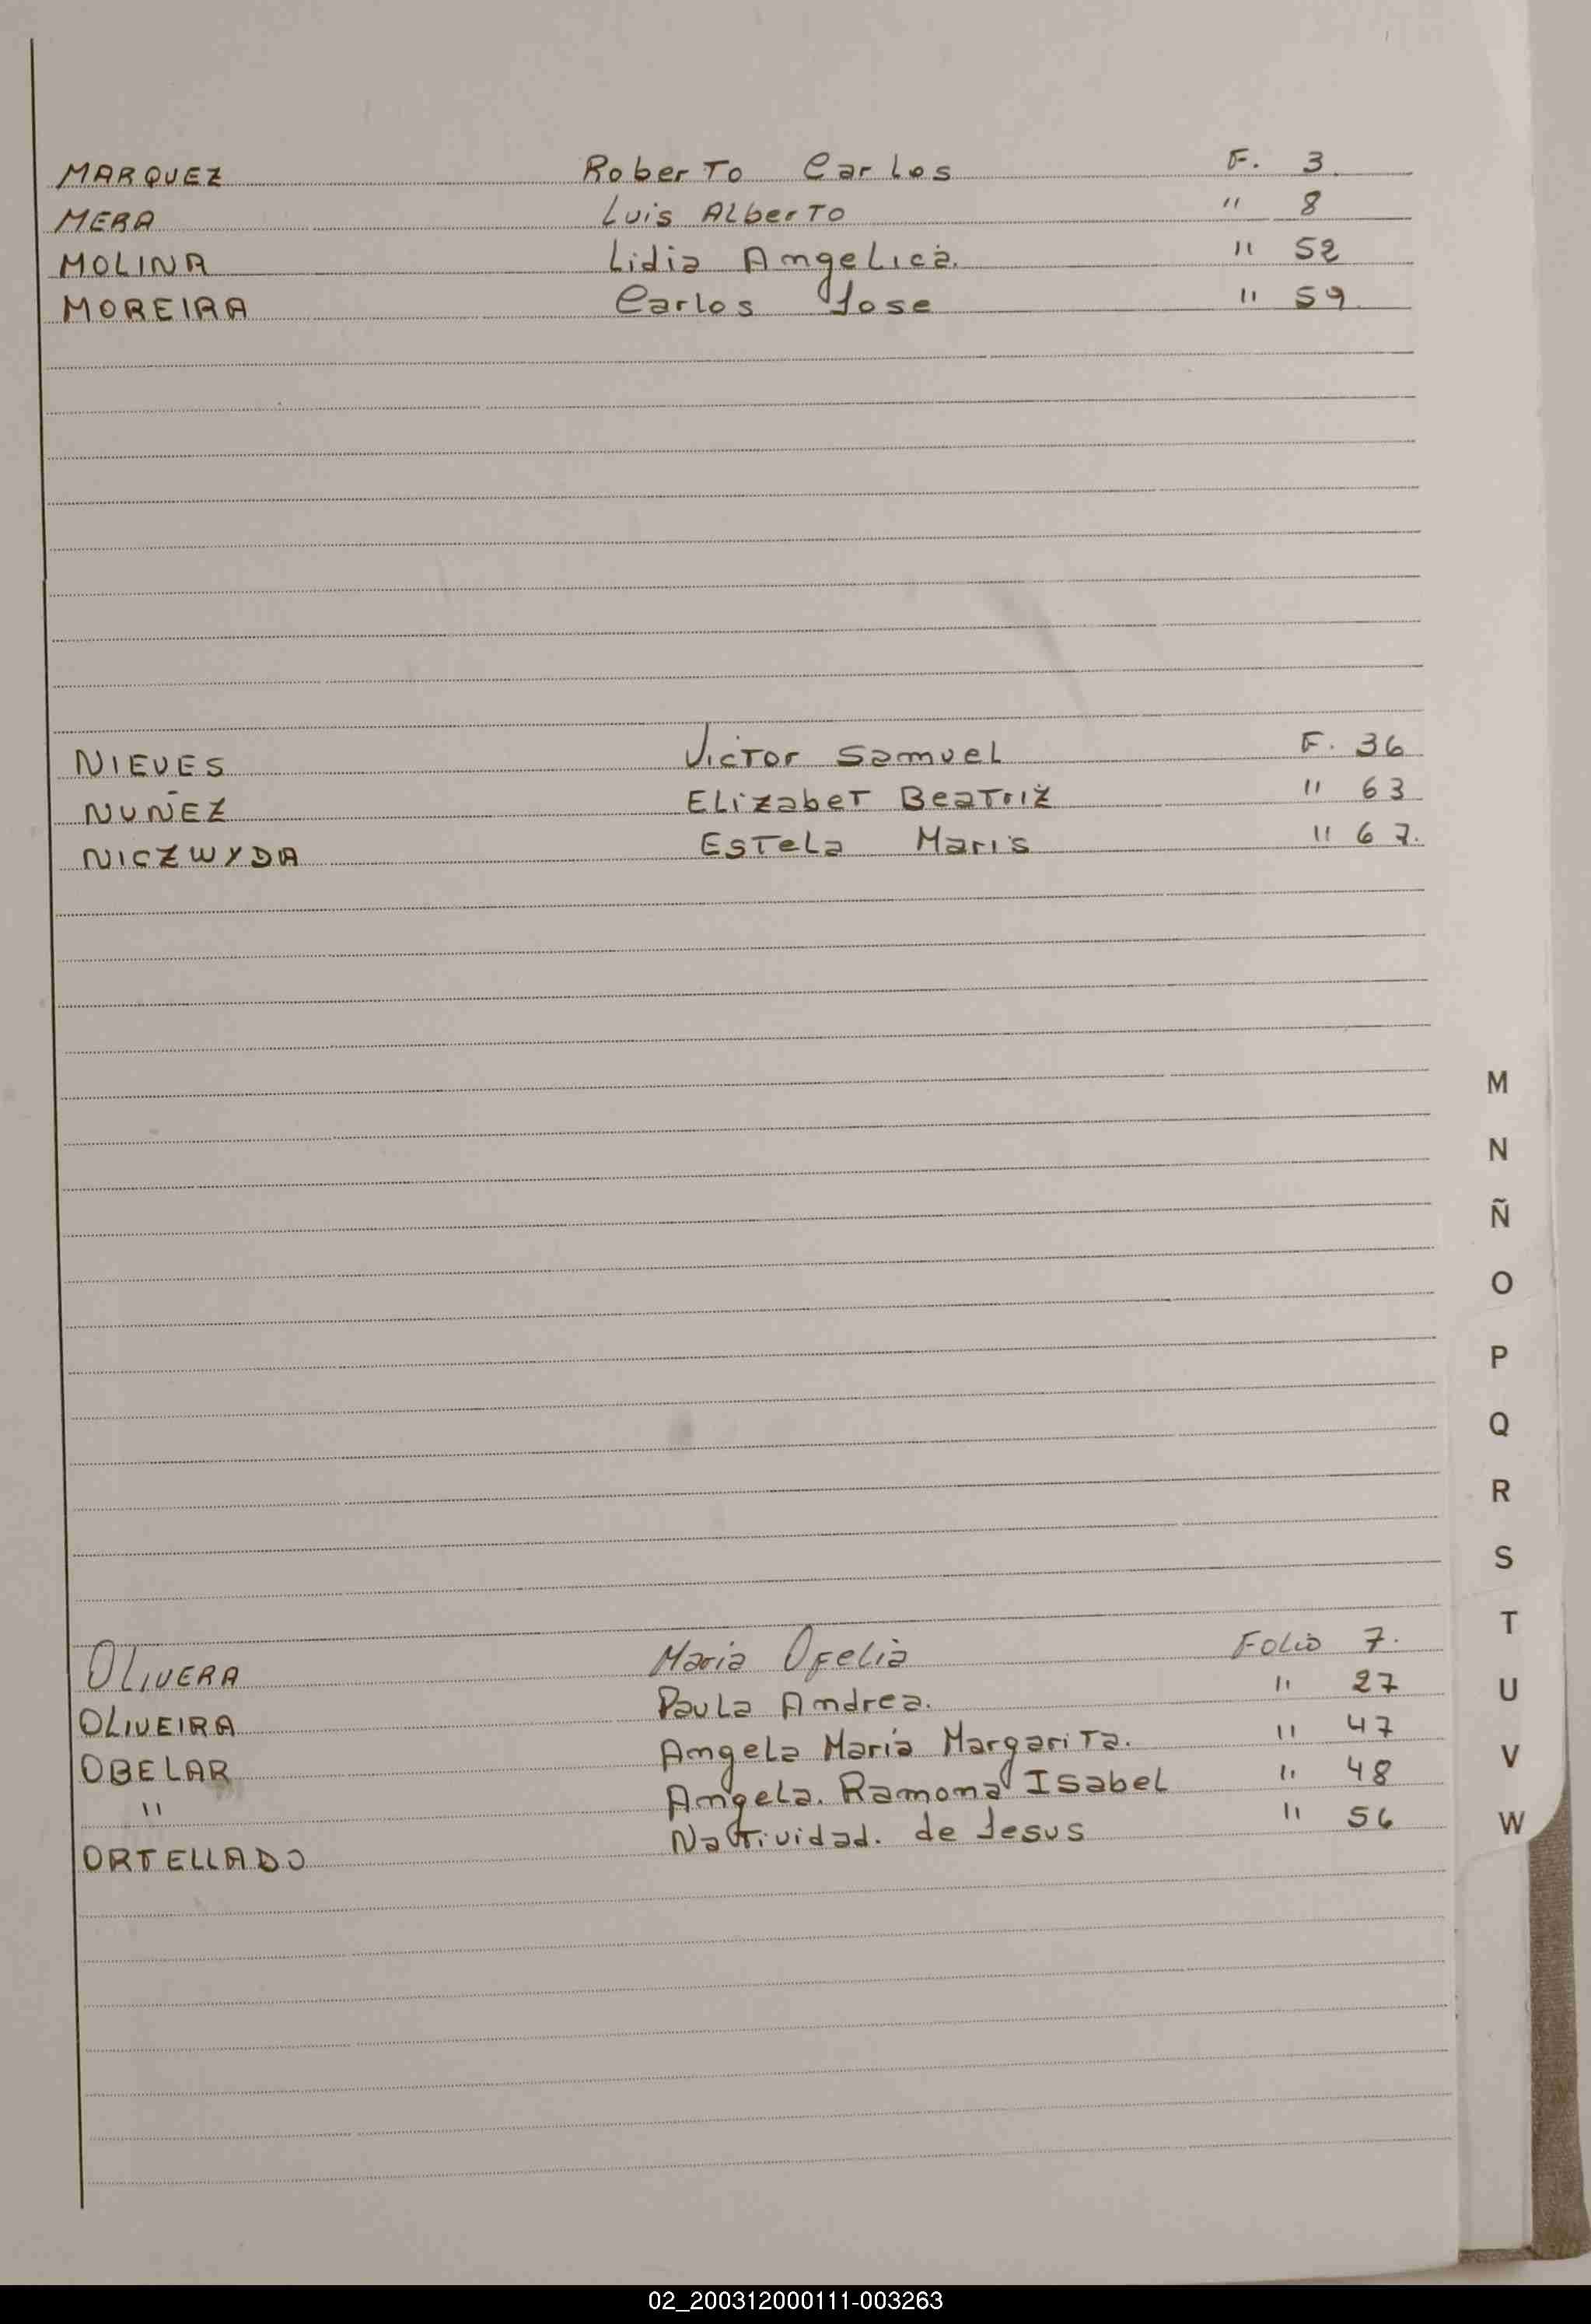 MARQUEZ Roberto Carlos F. 3.
MERA Luis Alberto " 8
MOLINA Lidia Angelica. " 52
MOREIRA Carlos Jose " 59.
NIEVES Victor Samuel F. 36
NUÑEZ Elizabet Beatriz " 63
NICZWYDA Estela Maris " 67.
M
N
Ñ
O
P
Q
R
S
T
U
V
W
OLIVERA Maria Ofelia Folio 7.
OLIVEIRA Paula Andrea. " 27
OBELAR Angela Maria Margarita. " 47
" Angela. Ramona Isabel " 48
ORTELLADO Natividad. de Jesus " 56
02_200312000111-003263